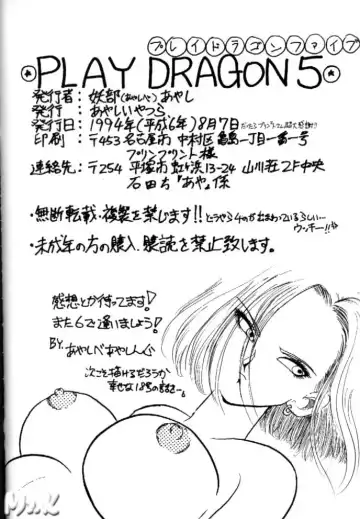 プレイドラゴンファイブ
PLAY DRAGON 5
発行者: 妖部(あやしべ)あやし
発行: あやしいやつら
発行日: 1994年(平成6年)8月7日
印刷: 〒453 名古屋市 中村区 亀島一丁目一番一号
プリンプリント様
連絡先: 〒254 平塚市 虹ヶ浜13-24 山川荘2F中央
石田ち"あや"様
・無断転載・複製を禁じます!!
ウッキー!!
・未成年の方の購入、購読を禁止致します。
感想とか待ってます!
また6で逢いましょう!
BY. あやしべあやしんぐ
次こそ描けるだろうか
幸せな18号の話を…。